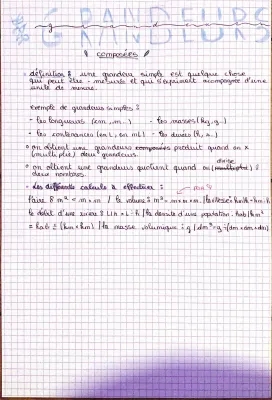 GRANDEURS
composées
définition : une grandeur simple est quelque chose
qui peut être mesurée et qui s'expriment accompagnée d'une
unité de mesure.
exemple de grandeurs simples :
- les longueurs (cm, m) - les masses (kg, g)
- les contenances (en L, en mL) - les durées (h, )
on obtient une grandeurs composées produit quand on x
(multiplie) deux grandeurs.
on obtient une grandeurs quotient quand on divise
deux nombres.
- Les différents calculs à effectuer :
faire : m² = m x m / le volume : m³ = m x m x m / la vitesse : km/h = km : h
le débit d'une : L/h = L : h / la densité d'une population : hab/km²
= hab ÷ (km x km) / la masse volumique : g/dm³ = g ÷ (dm x dm x dm)